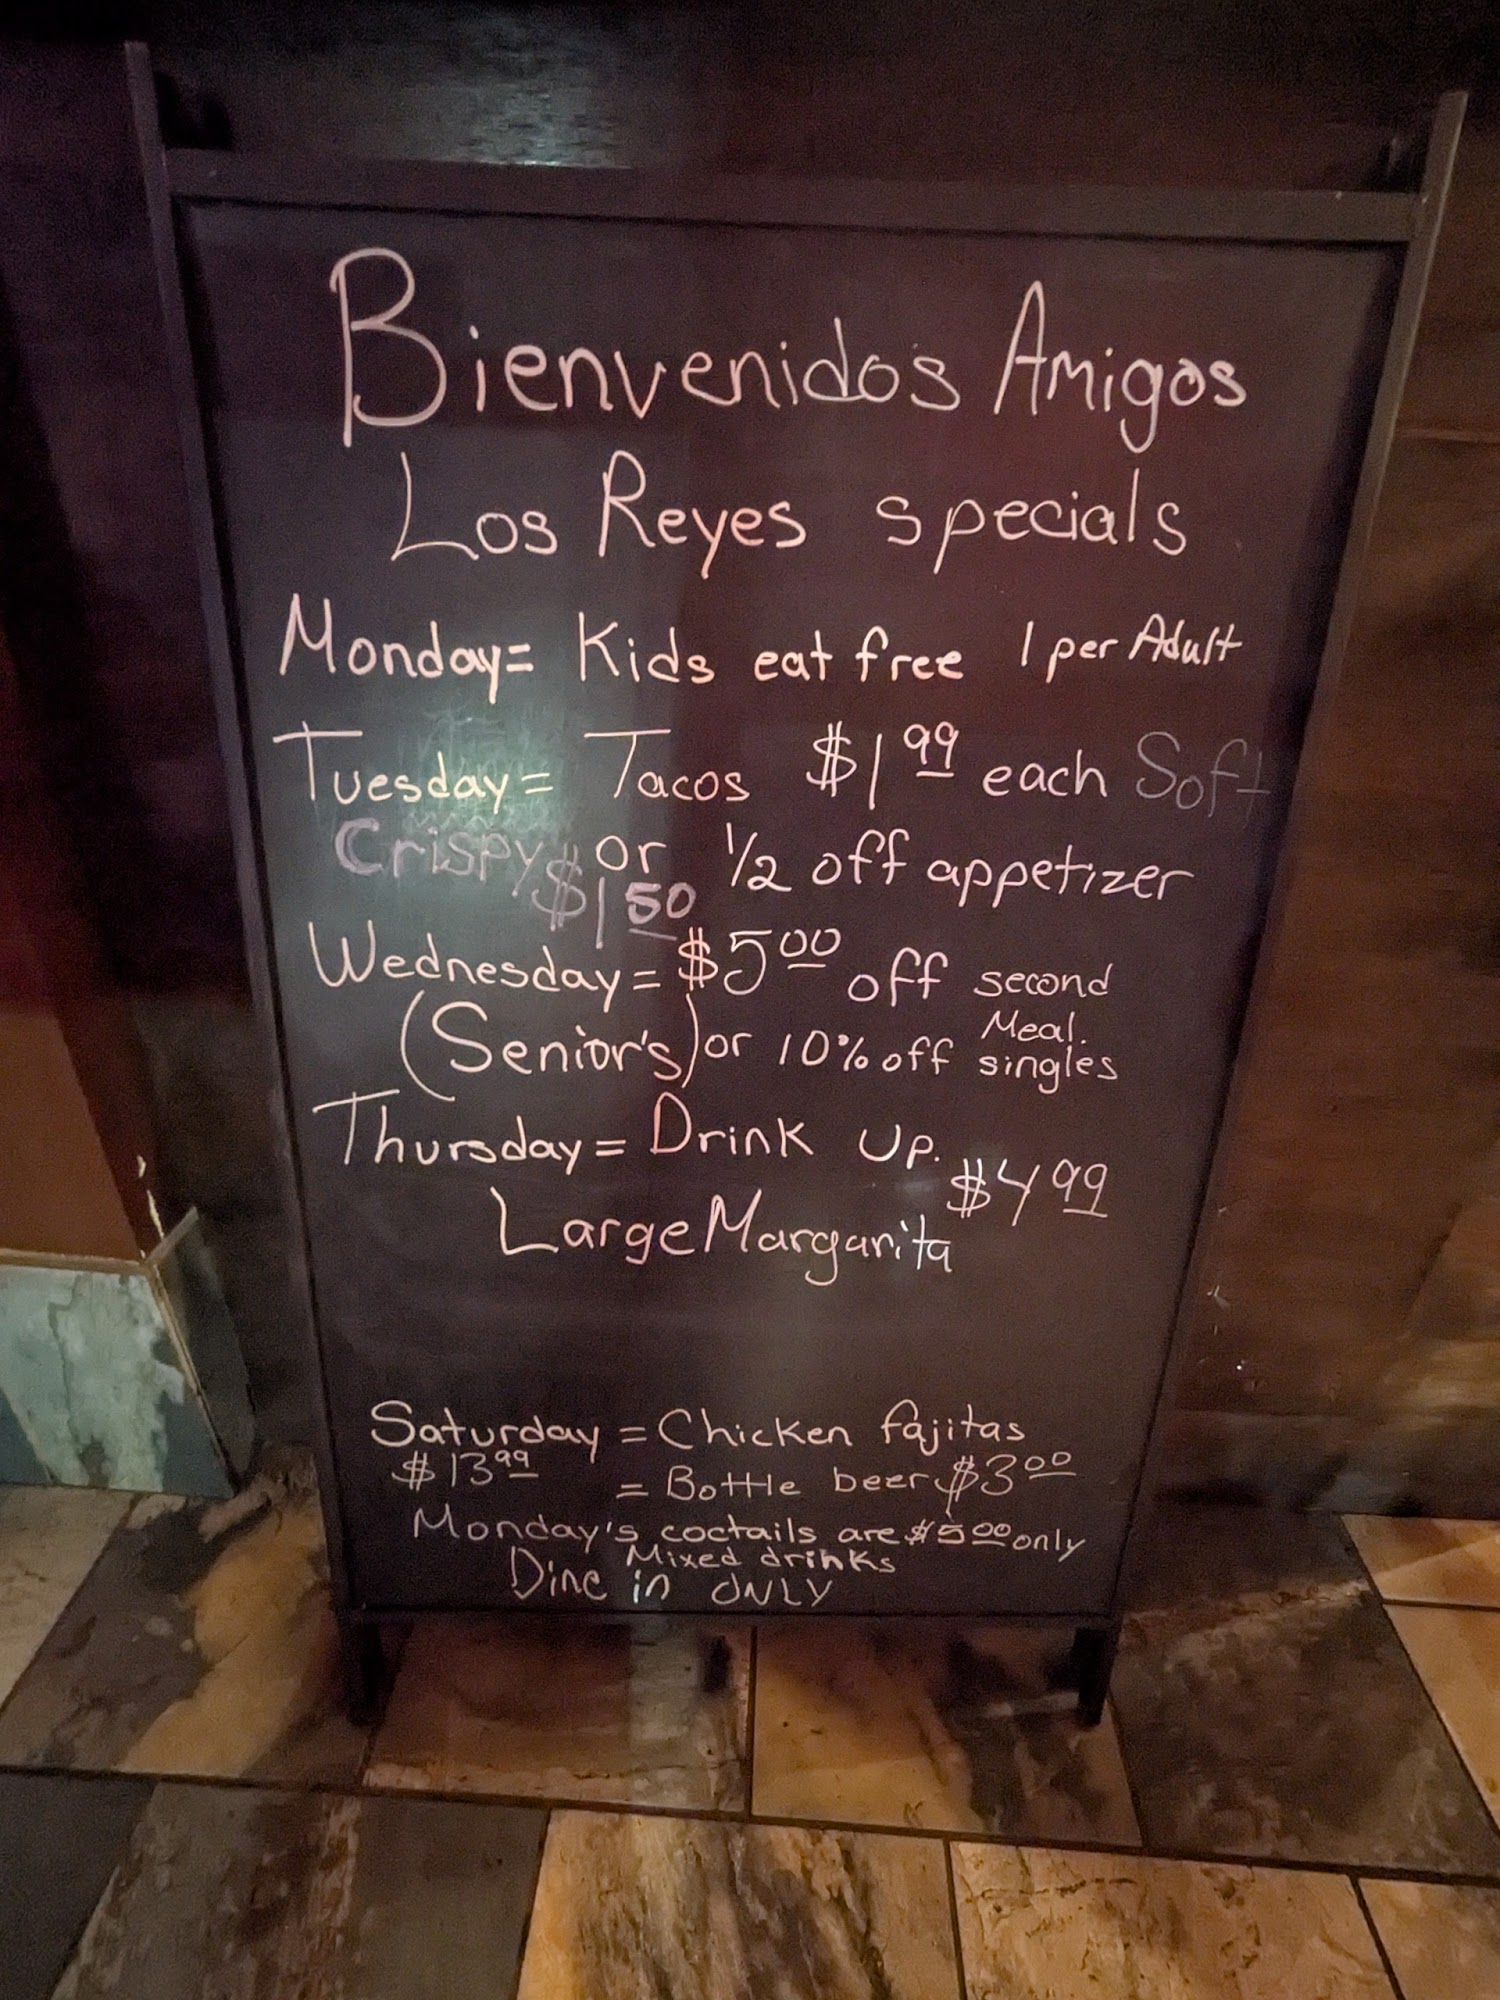 Bienvenidos Amigos
Los Reyes specials
Monday= Kids eat free 1 per Adult
Tuesday= Tacos $1.99 each Soft
Crispy $1.50 or 1/2 off appetizer
Wednesday= $5.00 off second Meal.
(Senior's) or 10% off singles
Thursday= Drink Up.
Large Margarita $4.99
Saturday = Chicken fajitas
$13.99 = Bottle beer $3.00
Monday's coctails are $5.00 only
Mixed drinks
Dine in ONLY